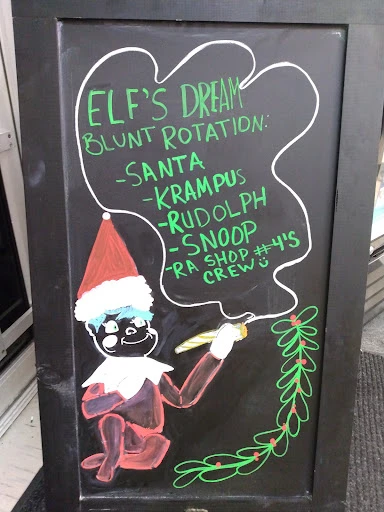 ELF'S DREAM
BLUNT ROTATION:
-SANTA
-KRAMPUS
-RUDOLPH
-SNOOP
-RA SHOP #4'S
CREW